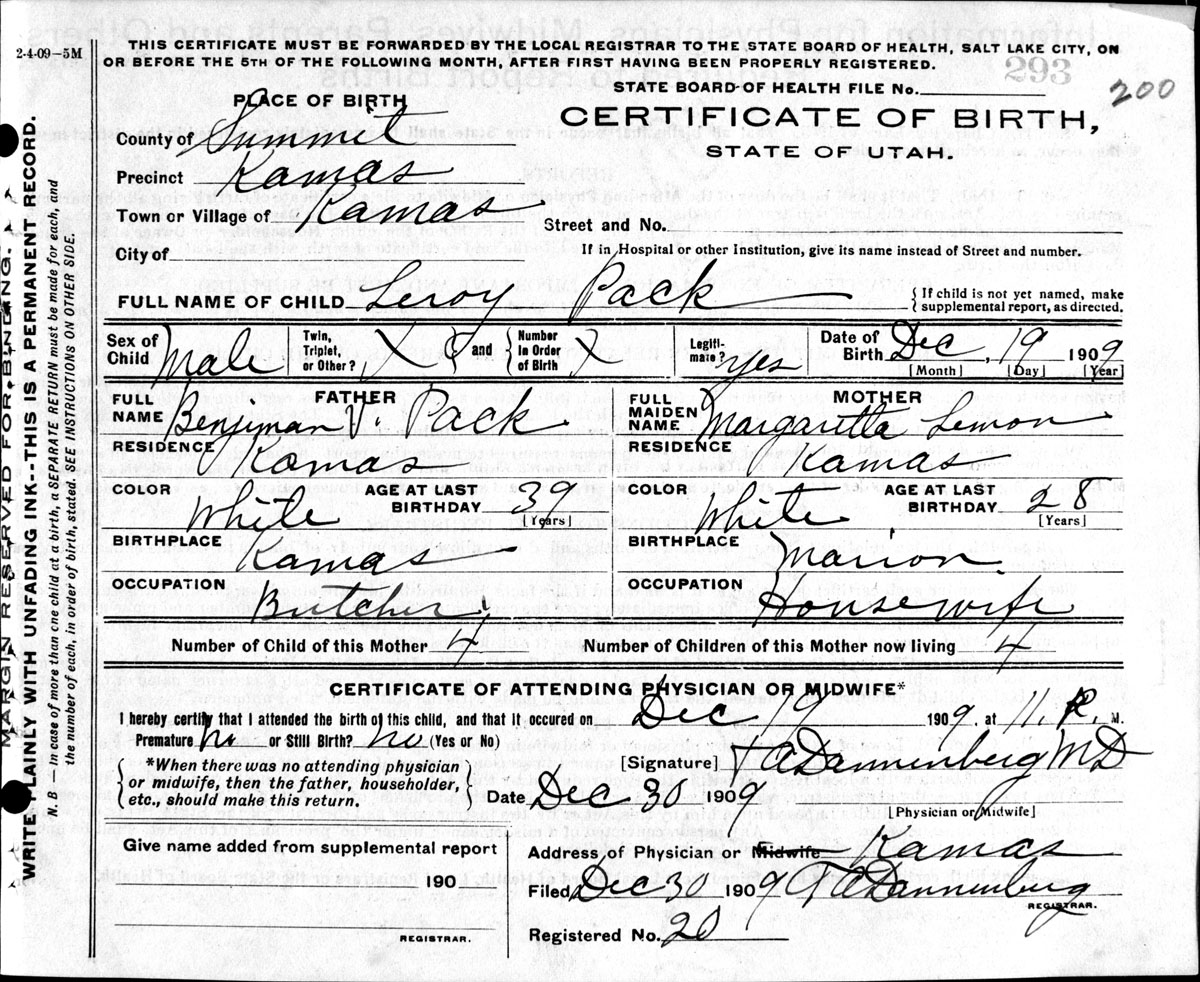 2-4-09—5M
THIS CERTIFICATE MUST BE FORWARDED BY THE LOCAL REGISTRAR TO THE STATE BOARD OF HEALTH, SALT LAKE CITY, ON
OR BEFORE THE 5TH OF THE FOLLOWING MONTH, AFTER FIRST HAVING BEEN PROPERLY REGISTERED.
293
200
STATE BOARD OF HEALTH FILE No.
PLACE OF BIRTH
CERTIFICATE OF BIRTH,
STATE OF UTAH.
County of Summit
Precinct Kamas
Town or Village of Kamas
Street and No.
City of
If in Hospital or other Institution, give its name instead of Street and number.
FULL NAME OF CHILD Leroy Pack
{ If child is not yet named, make
supplemental report, as directed.
Sex of Child Male
Twin, Triplet, or Other? X } and { Number in Order of Birth X
Legitimate? yes
Date of Birth Dec, 19 1909
[Month] [Day] [Year]
FATHER
FULL NAME Benjiman V. Pack
RESIDENCE Kamas
COLOR White AGE AT LAST BIRTHDAY 39 [Years]
BIRTHPLACE Kamas
OCCUPATION Butcher
MOTHER
FULL MAIDEN NAME Margaretta Lemon
RESIDENCE Kamas
COLOR White AGE AT LAST BIRTHDAY 28 [Years]
BIRTHPLACE Marion.
OCCUPATION Housewife
Number of Child of this Mother 4 Number of Children of this Mother now living 4
CERTIFICATE OF ATTENDING PHYSICIAN OR MIDWIFE*
I hereby certify that I attended the birth of this child, and that it occured on Dec 19 1909, at 11. P. M.
Premature no or Still Birth? no (Yes or No)
*When there was no attending physician
or midwife, then the father, householder,
etc., should make this return.
[Signature] Dannenberg MD
Date Dec 30 1909
[Physician or Midwife]
Give name added from supplemental report
190
REGISTRAR.
Address of Physician or Midwife Kamas
Filed Dec 30 1909 Dannenberg
REGISTRAR.
Registered No. 20
MARGIN RESERVED FOR BINDING.
WRITE PLAINLY WITH UNFADING INK--THIS IS A PERMANENT RECORD.
N. B — in case of more than one child at a birth, a SEPARATE RETURN must be made for each, and
the number of each, in order of birth, stated. SEE INSTRUCTIONS ON OTHER SIDE.